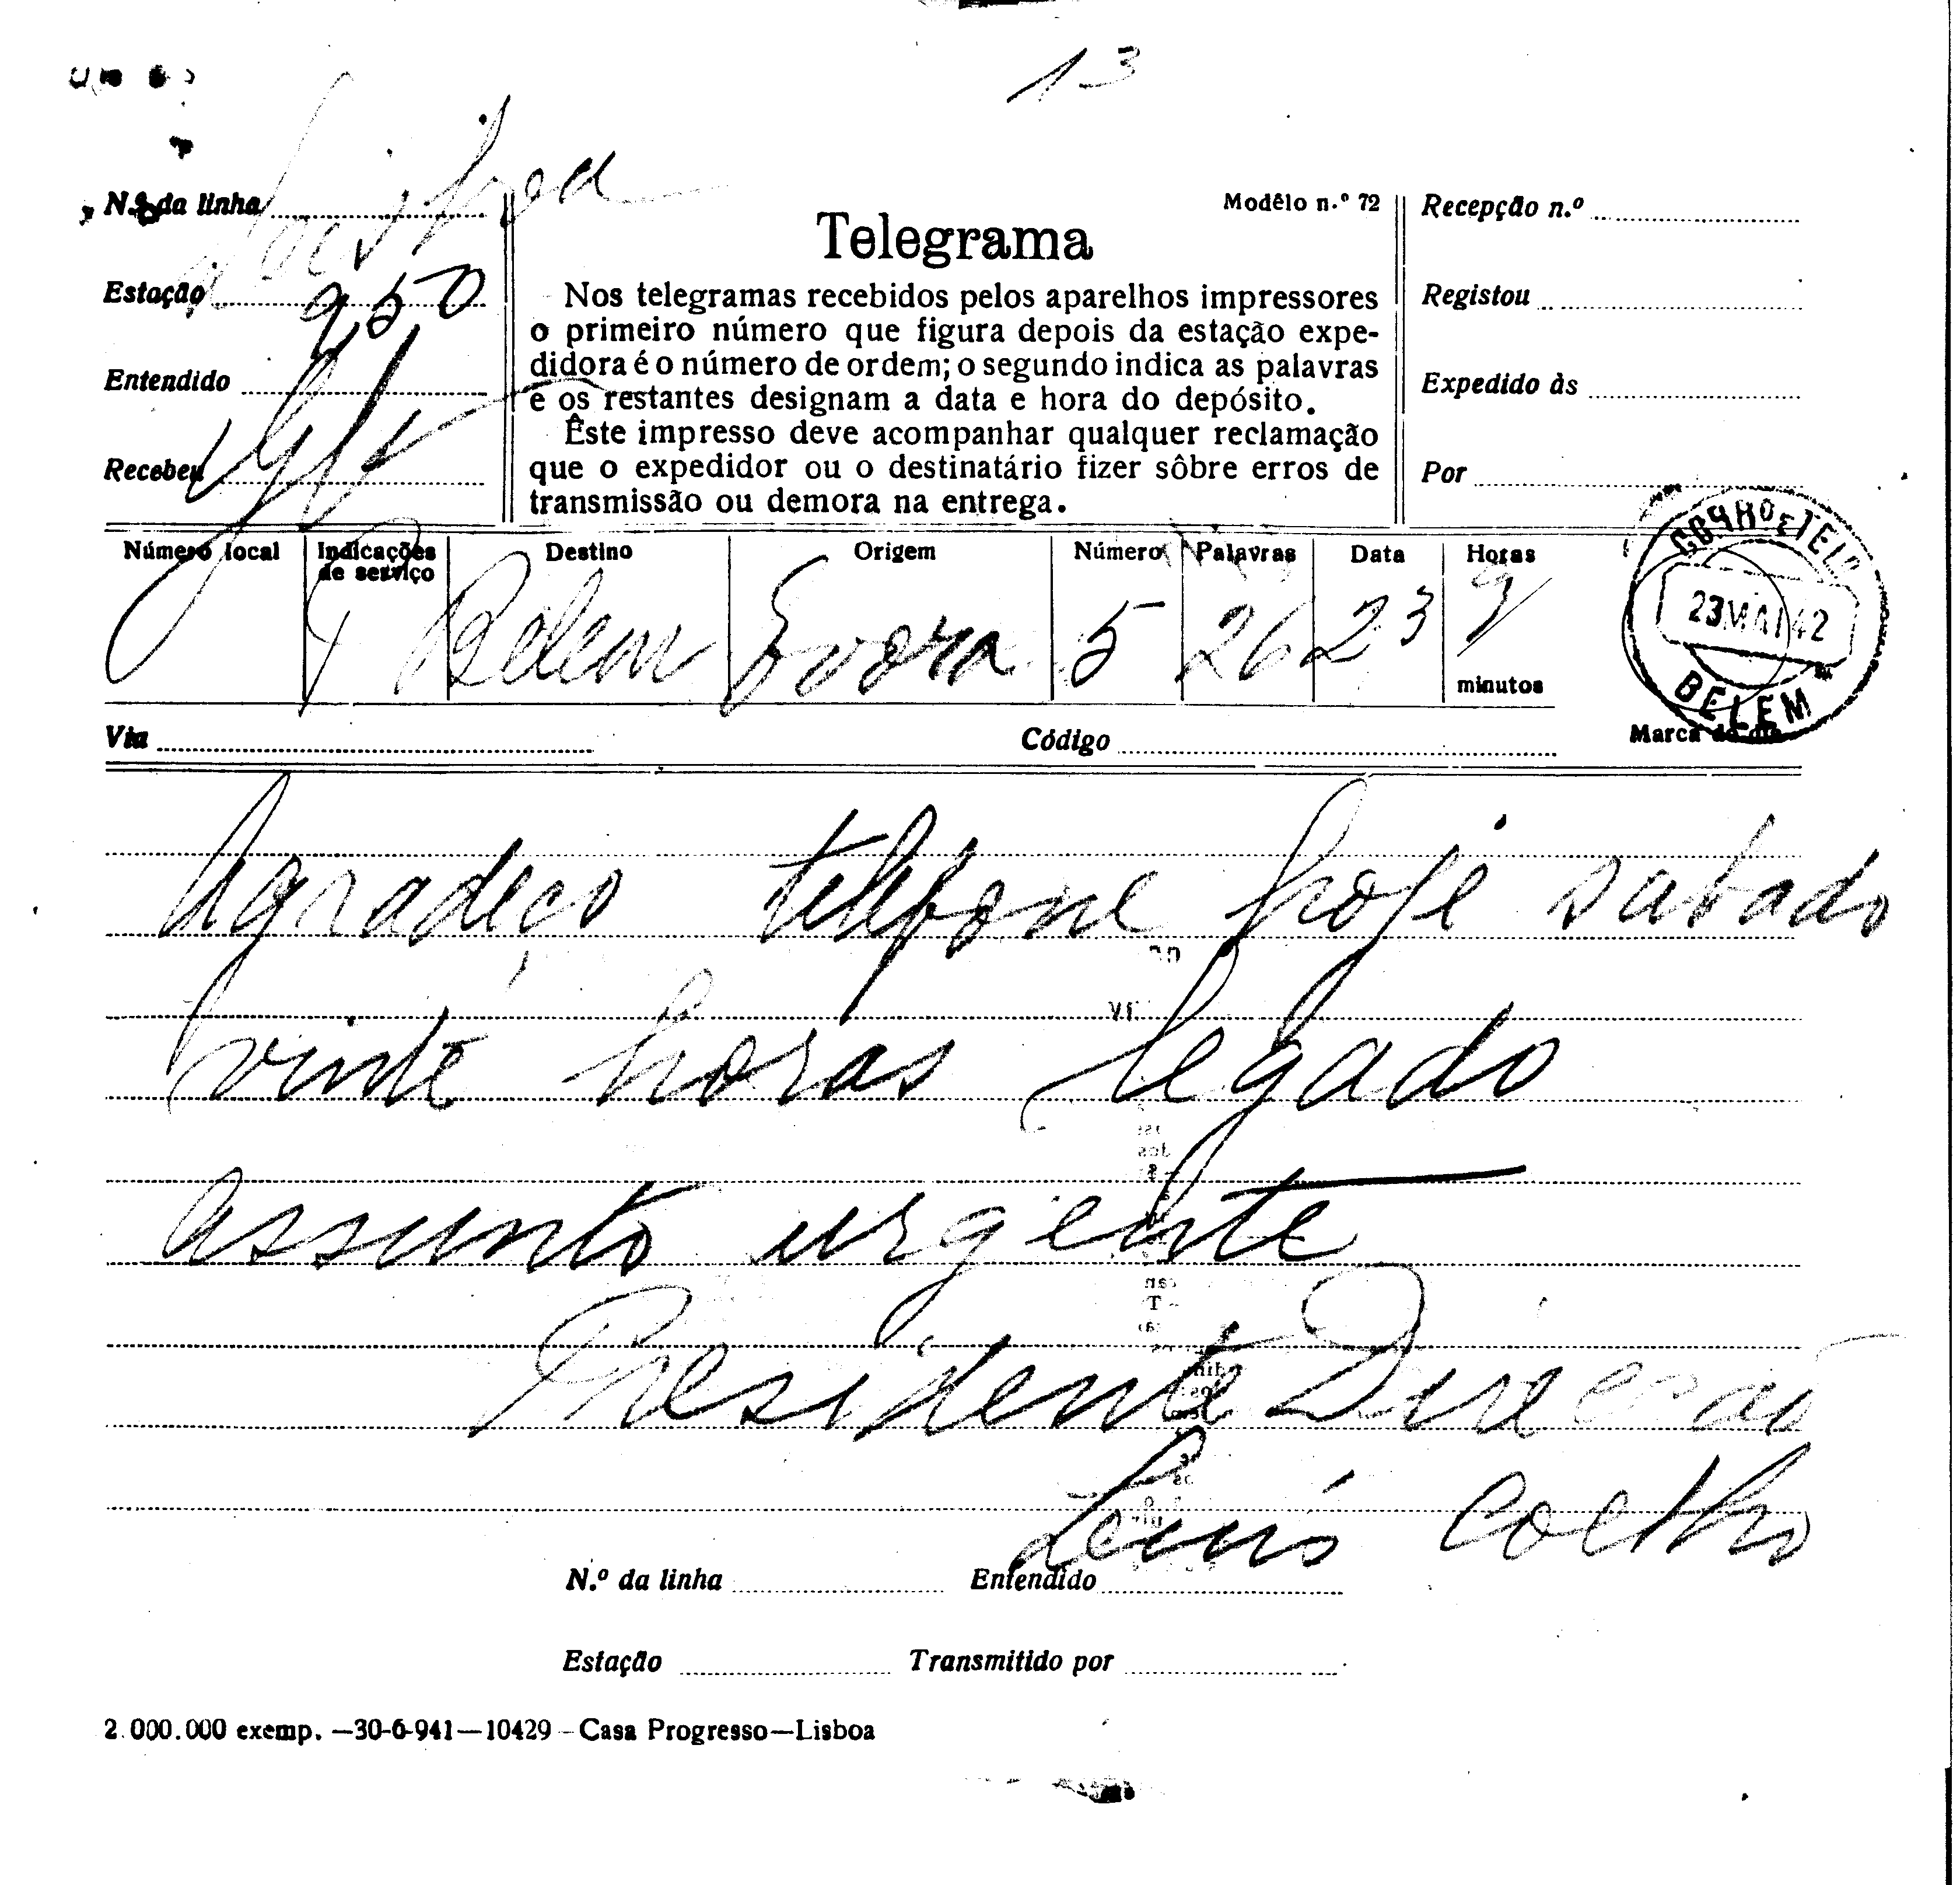 13
N.º da linha
Estação 9,50
Entendido
Recebeu
Modêlo n.º 72
Telegrama
Nos telegramas recebidos pelos aparelhos impressores
o primeiro número que figura depois da estação expe-
didora é o número de ordem; o segundo indica as palavras
e os restantes designam a data e hora do depósito.
Êste impresso deve acompanhar qualquer reclamação
que o expedidor ou o destinatário fizer sôbre erros de
transmissão ou demora na entrega.
Recepção n.º
Registou
Expedido às
Por
Número local Indicações de serviço Destino Origem Número Palavras Data Horas
Belem Evora 5 26 23 9
minutos
CORRO E TELO
23 MAI 42
BELEM
Marca do dia
Via Código
Agradeço telefone hoje sabado
vinte horas legado
assunto urgente
Presidente Direcao
Luis Coelho
N.º da linha Entendido
Estação Transmitido por
2.000.000 exemp. —30-6-941—10429—Casa Progresso—Lisboa